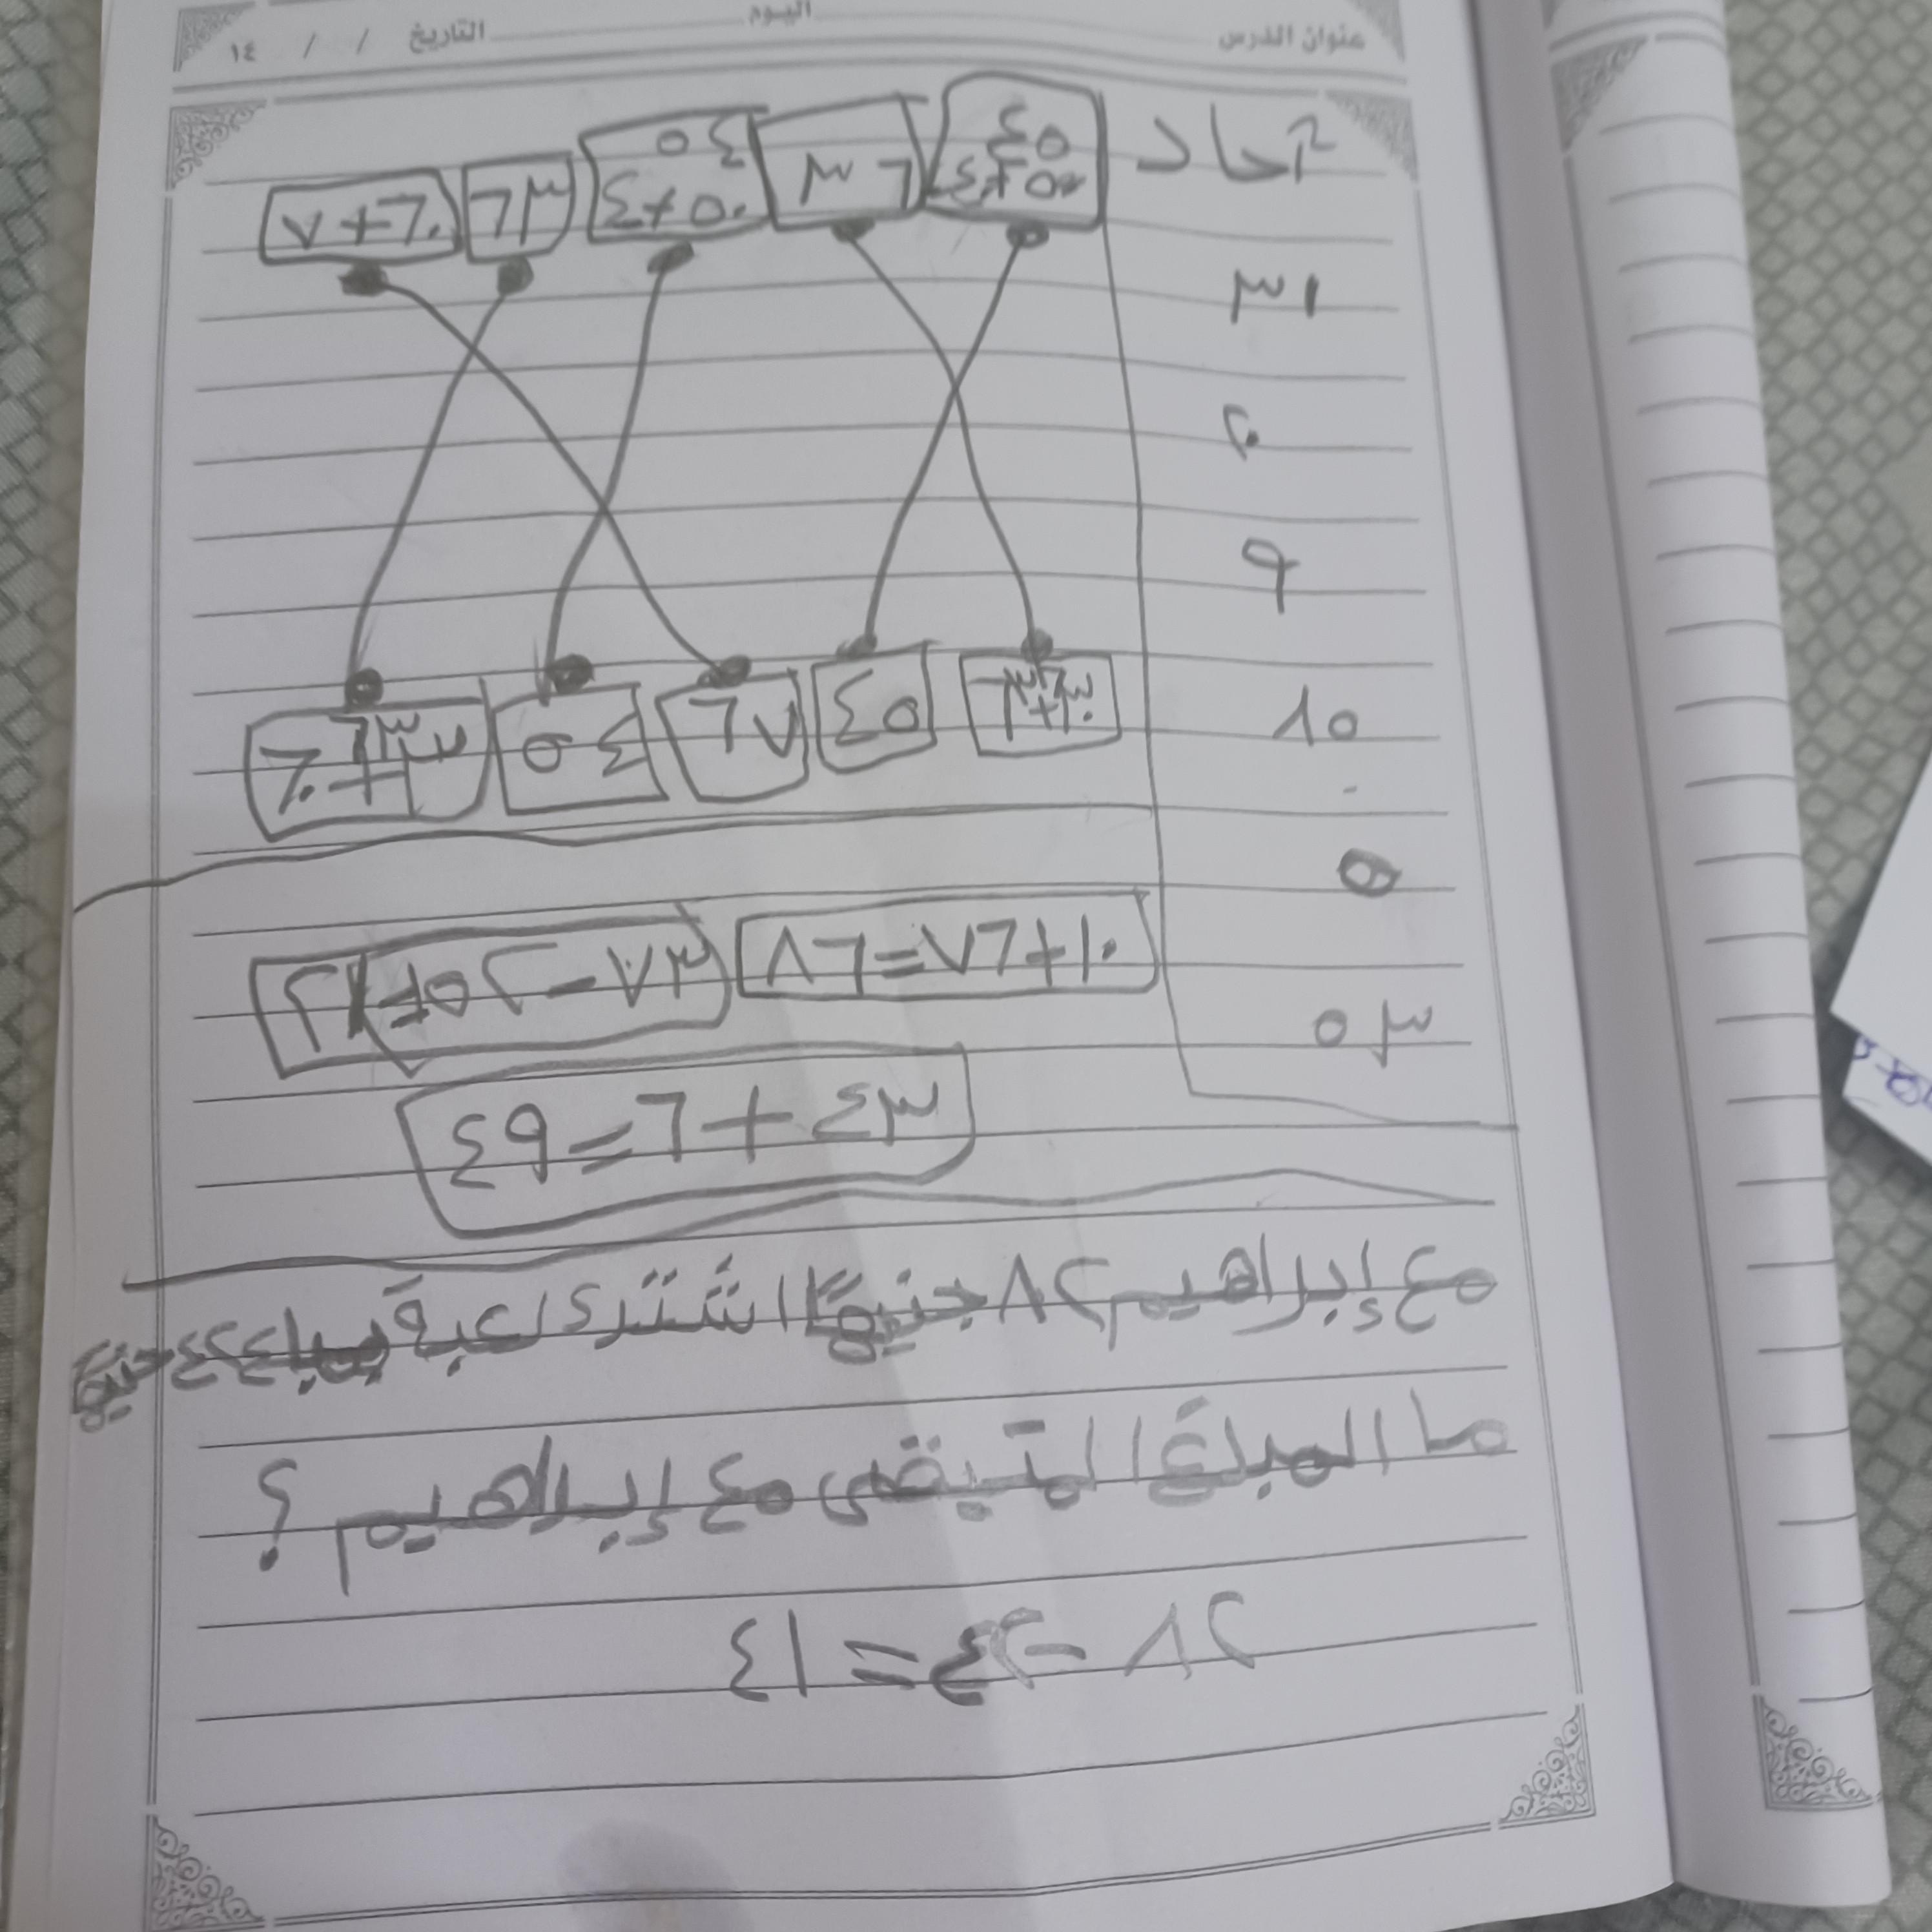 عنوان الدرس اليوم التاريخ / / ١٤
آحاد
٤٥
٥٠+٤ ٣٦ ٥٤
٥٠+٤ ٦٣ ٦٠+٧
٣١
٢٠
٩
١٥
٥
٥٣
٤٥ ٦٧ ٥٤
١٠+٧٦=٨٦ ٧٣-٥٢=٢١
٤٣+٦=٤٩
مع إبراهيم ٨٢ جنيهًا اشترى لعبة بمبلغ ٤٢ جنيهًا
ما المبلغ المتبقى مع إبراهيم ؟
٨٢ - ٤٢ = ٤١